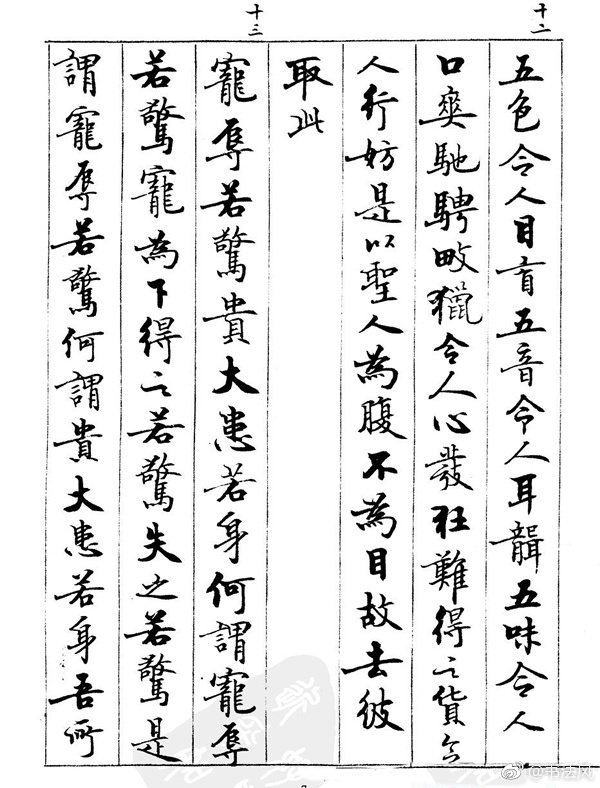 十二
五色令人目盲五音令人耳聾五味令人
口爽馳騁畋獵令人心發狂難得之貨令
人行妨是以聖人為腹不為目故去彼
取此
十三
寵辱若驚貴大患若身何謂寵辱
若驚寵為下得之若驚失之若驚是
謂寵辱若驚何謂貴大患若身吾所
@书法风